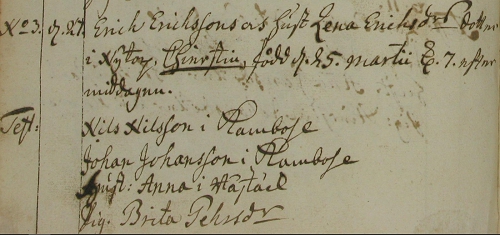 No 3. d. 27. Erich Erichssons as hust Lena Erichsdr dotter
i Nytorp, Chierstin, född d. 25. martii kl. 7. efter
middagen.
Test: Nils Nilsson i Rambose
Johan Johansson i Rambose
hust: Anna i
Pig. Brita Pehrsdr